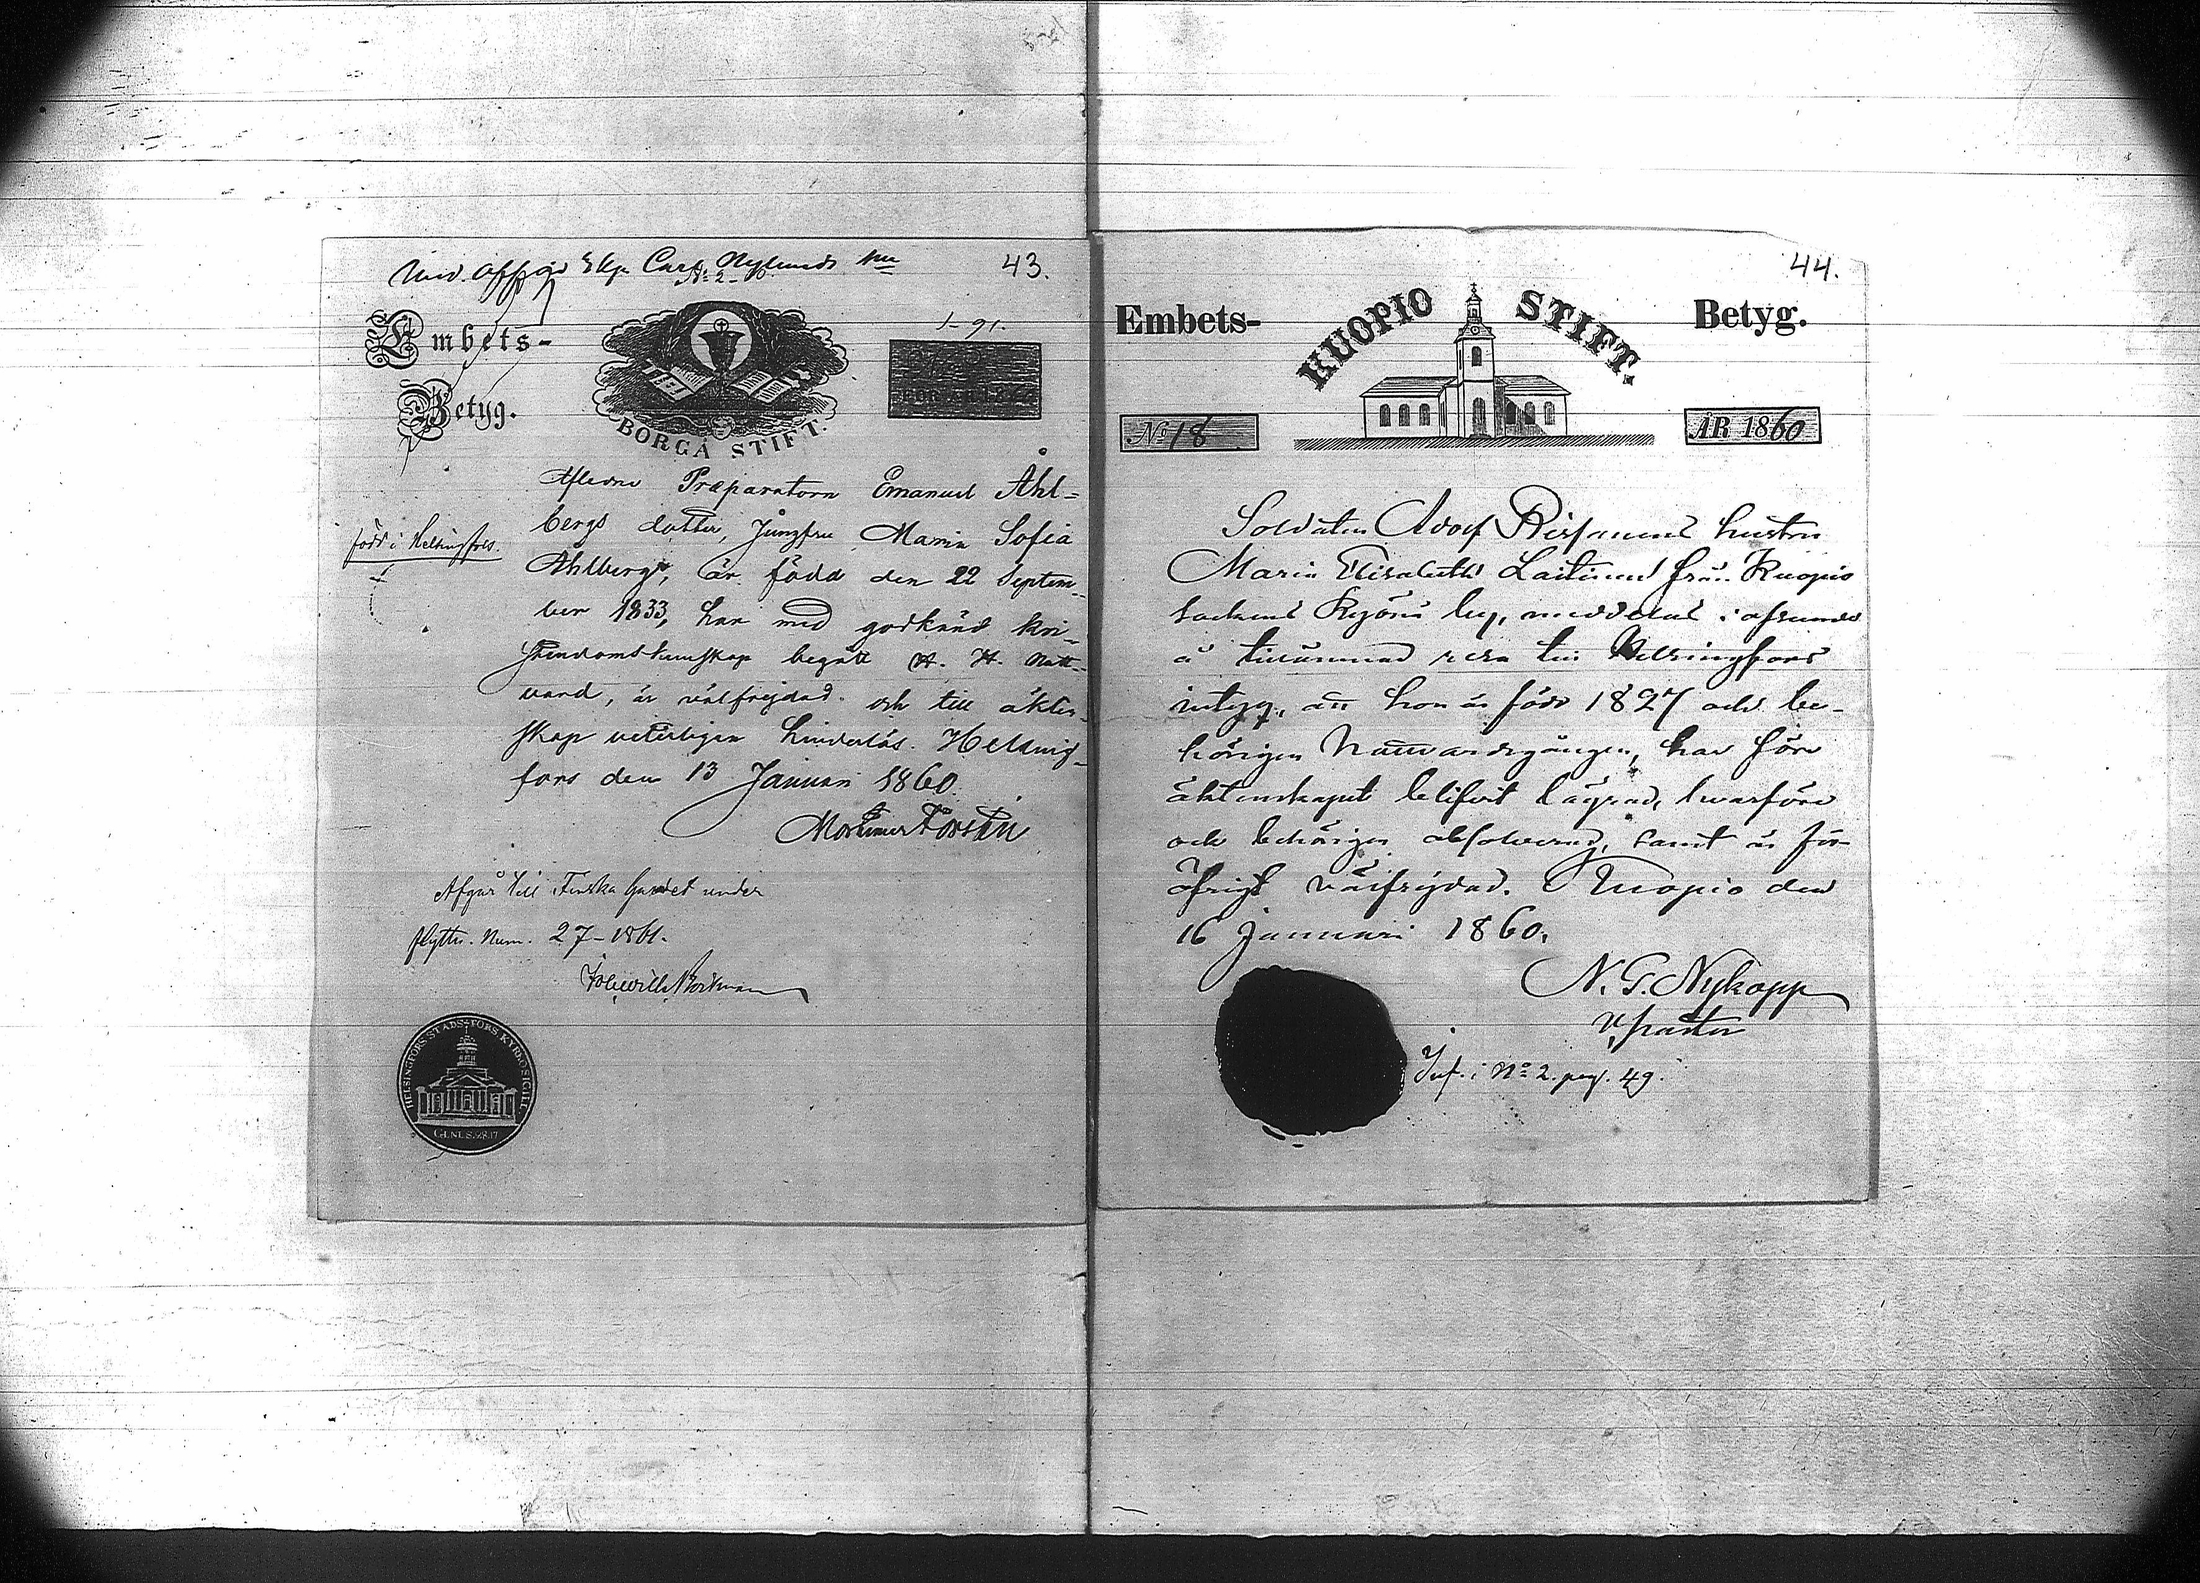 43.
1-91.
Embets-
Betyg.
BORGÅ STIFT.
FÖR ÅR 1860
Afledne Præparatorn Emanuel Åhl=
bergs dotter, Jungfru Maria Sofia
född i Helsingfors.
Åhlberg, är född den 22 Septem-
ber 1833, har med godkänd kri-
stendomskunskap begått H. H. Natt-
vard, är välfrejdad och till äkten-
skap veterligen hinderlös. Helsing-
fors den 13 Januari 1860.
Afgår till Finska Gardet under
flyttn. Num. 27-1861.
HELSINGFORS STADS-FÖRS. KYRKOSIGILL
44.
Embets-
KUOPIO STIFT.
Betyg.
No 18
ÅR 1860
Soldaten Adolf Rissanens hustru
Maria Elisabeth Laitinen från Kuopio
sockens by, meddelas i afseende
å tillämnad resa till Helsingfors
intyg, att hon är född 1827 och be-
hörigen Nattvardsgången, har före
äktenskapet blifvit lägrad, hvarföre
och behörigen absolverad, samt är för
öfrigt välfrejdad. Kuopio den
16 Januari 1860.
N. G. Nykopp
V. pastor
Inf. i No 2. pag. 49.